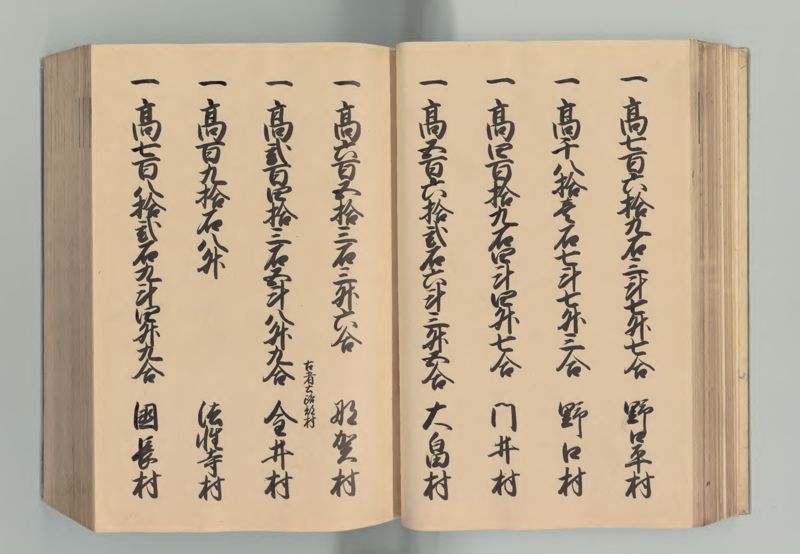 一 高七百六拾九石三斗七升七合 野口平村
一 高千八拾壱石七斗七升三合 野口村
一 高四百拾九石四斗四升七合 門井村
一 高五百六拾弐石六斗三升五合 大畠村
一 高六百五拾三石三升六合 那賀村
一 高弐百四拾三石五斗八升九合 金井村
一 高百九拾石八升 法性寺村
一 高七百八拾弐石九斗四升九合 國長村